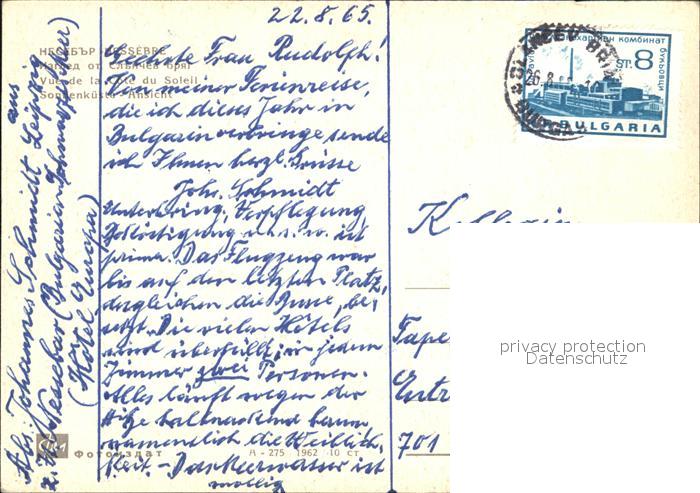 22.8.65.
НЕСЕБЪР NESSÈBRE
Изглед от Слънчев бряг
Vue de la Côte du Soleil
Sonnenküste - Ansicht
Geehrte Frau Rudolph!
Von meiner Ferienreise,
die ich dieses Jahr in
Bulgarien verbringe, sende
ich Ihnen herzl. Grüsse
Johs. Schmidt
Unterbring., Verpflegung,
Beköstigung u.s.w. ist
prima. Das Flugzeug war
bis auf den letzten Platz,
desgleichen die Busse, be-
setzt. Die vielen Hotels
sind überfüllt; in jedem
Zimmer zwei Personen.
Alles läuft wegen der
Hitze halbnackend herum,
namentlich die Weiblich-
keit. - Das Meerwasser ist
mollig
Abs. Johannes Schmidt Leipzig aus
z. Zt. Nessebar (Bulgarien)
(Hotel Europa)
Фотоиздат
А - 275 1962 10 ст
комбинат
ст. 8
BULGARIA
26.8.
701
privacy protection
Datenschutz